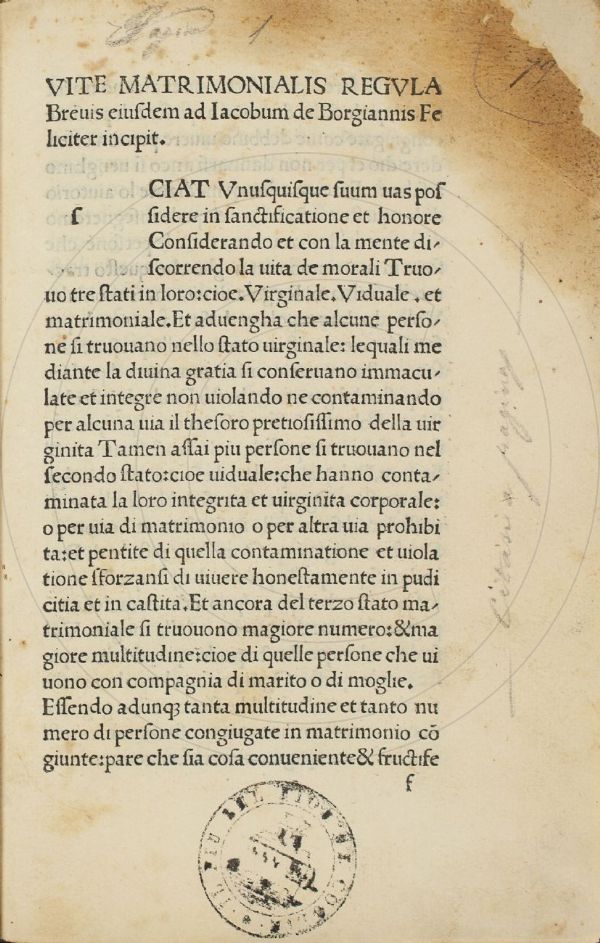 VITE MATRIMONIALIS REGVLA
Breuis eiusdem ad Iacobum de Borgiannis Fe
liciter incipit.
CIAT Vnusquisque suum uas pos
ſ ſidere in ſanctificatione et honore
Conſiderando et con la mente di-
ſcorrendo la uita de morali Truo-
uo tre ſtati in loro:cioe.Virginale.Viduale.et
matrimoniale.Et aduengha che alcune perſo-
ne ſi truouano nello ſtato uirginale: lequali me
diante la diuina gratia ſi conſeruano immacu-
late et integre non uiolando ne contaminando
per alcuna uia il theſoro pretioſiſſimo della uir
ginita Tamen aſſai piu perſone ſi truouano nel
ſecondo ſtato:cioe uiduale:che hanno conta-
minata la loro integrita et uirginita corporale:
o per uia di matrimonio o per altra uia prohibi
ta:et pentite di quella contaminatione et uiola
tione sforzanſi di uiuere honeſtamente in pudi
citia et in caſtita.Et ancora del terzo ſtato ma-
trimoniale ſi truouono magiore numero:&ma
giore multitudine:cioe di quelle perſone che ui
uono con compagnia di marito o di moglie.
Eſſendo adunqꝫ tanta multitudine et tanto nu
mero di perſone congiugate in matrimonio cō
giunte:pare che ſia coſa conueniente& fructife
f